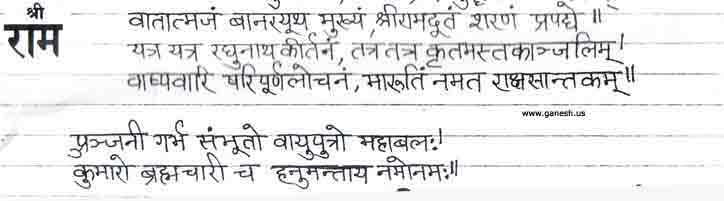 श्री
राम
वातात्मजं बानरयूथ मुख्यं, श्रीरामदूतं शरणं प्रपद्ये ॥
यत्र यत्र रघुनाथ कीर्तनं, तत्र तत्र कृतमस्तकाञ्जलिम्।
वाष्पवारि परिपूर्णलोचनं, मारुतिं नमत राक्षसान्तकम्॥
www.ganesh.us
पुञ्जनी गर्भ संभूतो वायुपुत्रो महाबलः।
कुमारो ब्रह्मचारी च हनुमन्ताय नमोनमः॥